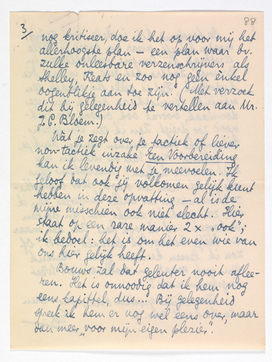 88
3
nog kritiser, doe ik het op voor mij het
allerhoogste plan — een plan waar bv.
zulke onleesbare verzenschrijvers als
Shelley, Keats en zoo nog geen enkel
oogenblikje aan toe zijn. (Met verzoek
dit bij gelegenheid te vertellen aan Mr.
J. C. Bloem.)
Wat je zegt over je tactiek of liever
non-tactiek inzake Een Voorbereiding
kan ik levendig met je meevoelen. Ik
geloof dat ook jij volkomen gelijk kunt
hebben in deze opvatting — al is de
mijne misschien ook niet slecht. Hier
staat op een rare manier 2 x „ook";
ik bedoel: het is om het even wie van
ons hier gelijk heeft.
Bouws zal dat geleuter nooit aflee-
ren. Het is onnoodig dat ik hem nog
eens kapittel, dus... Bij gelegenheid
spreek ik hem er nog wel eens over, maar
dan meer „voor mijn eigen plezier".